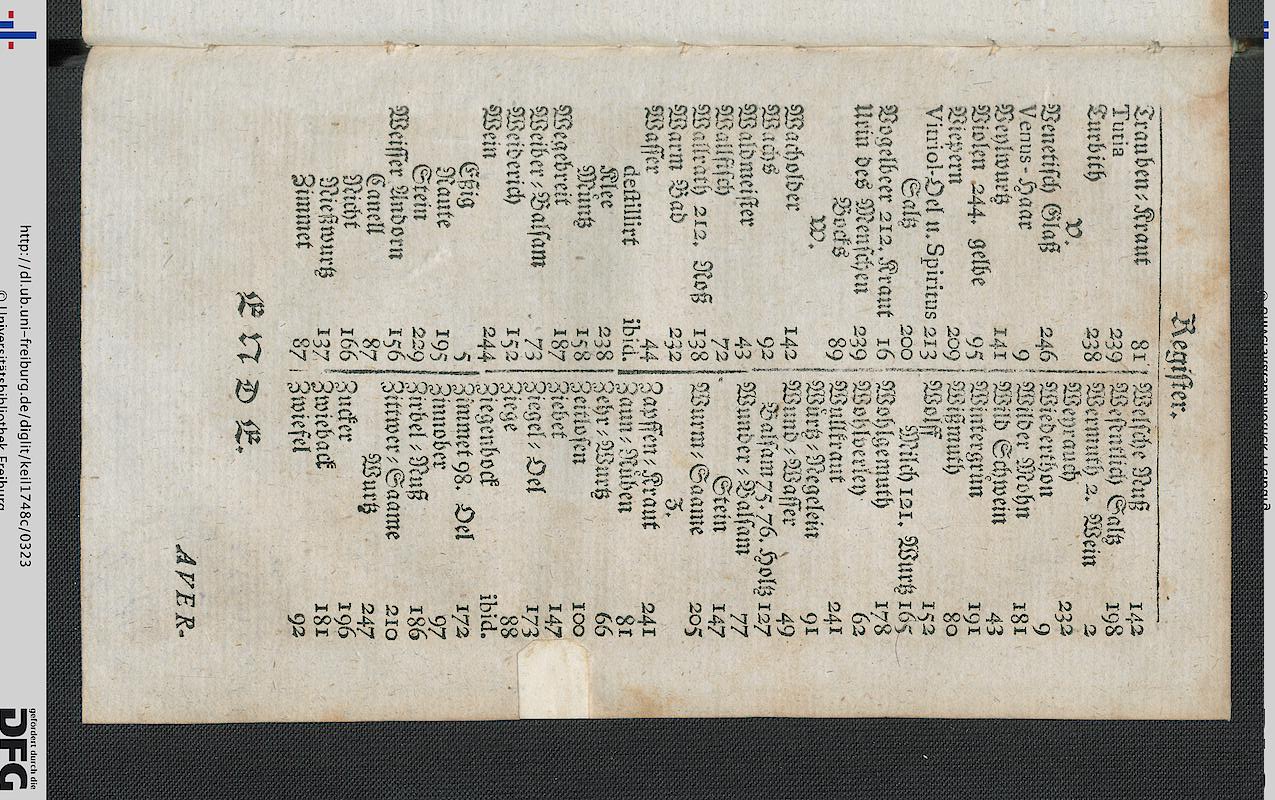 Register.
Trauben-Kraut 81
Tutia 229
Turbith 238
V.
Venetisch Glaß 246
Venus-Haar 9
Veylwurtz 141
Violen 244. gelbe 95
Viepern 209
Vitriol-Oel u. Spiritus 213
Saltz 200
Vogelbeer 212. Kraut 16
Urin des Menschen 239
Bocks 89
W.
Wacholder 142
Wachs 92
Waldmeister 43
Wallfisch 72
Wallrath 212. Roß 138
Warm Bad 232
Wasser 44
destillirt ibid.
Klee 238
Müntz 158
Wegebreit 187
Weiber-Balsam 73
Weiderich 152
Wein 244
Eßig 5
Raute 195
Stein 229
Weisser Andorn 156
Canell 87
Nicht 166
Nießwurtz 137
Zimmet 87
Welsche Nuß 142
Wesentlich Saltz 198
Wermuth 2. Wein 2
Weyrauch 232
Wiederthon 9
Wilder Mohn 181
Wild Schwein 43
Wintergrün 191
Wißmuth 80
Wolff 152
Milch 121. Wurtz 165
Wohlgemuth 178
Wohlverley 62
Wüllkraut 241
Würtz-Negelein 91
Wund-Wasser 49
Balsam 75. 76. Holtz 127
Wunder-Balsam 77
Stein 147
Wurm-Saame 205
Z.
Zapffen-Kraut 241
Zaun-Rüben 81
Zehr-Wurtz 66
Zeitlosen 100
Ziebet 147
Ziegel-Oel 173
Ziege 88
Ziegenbock ibid.
Zimmet 98. Oel 172
Zinnober 97
Zirbel-Nuß 186
Zittwer-Saame 210
Wurtz 247
Zucker 196
Zwieback 181
Zwiefel 92
ENDE.
AVER-
http://dl.ub.uni-freiburg.de/diglit/keil1748c/0323
© Universitätsbibliothek Freiburg
gefördert durch die
DFG